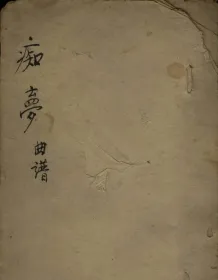 痴夢曲谱